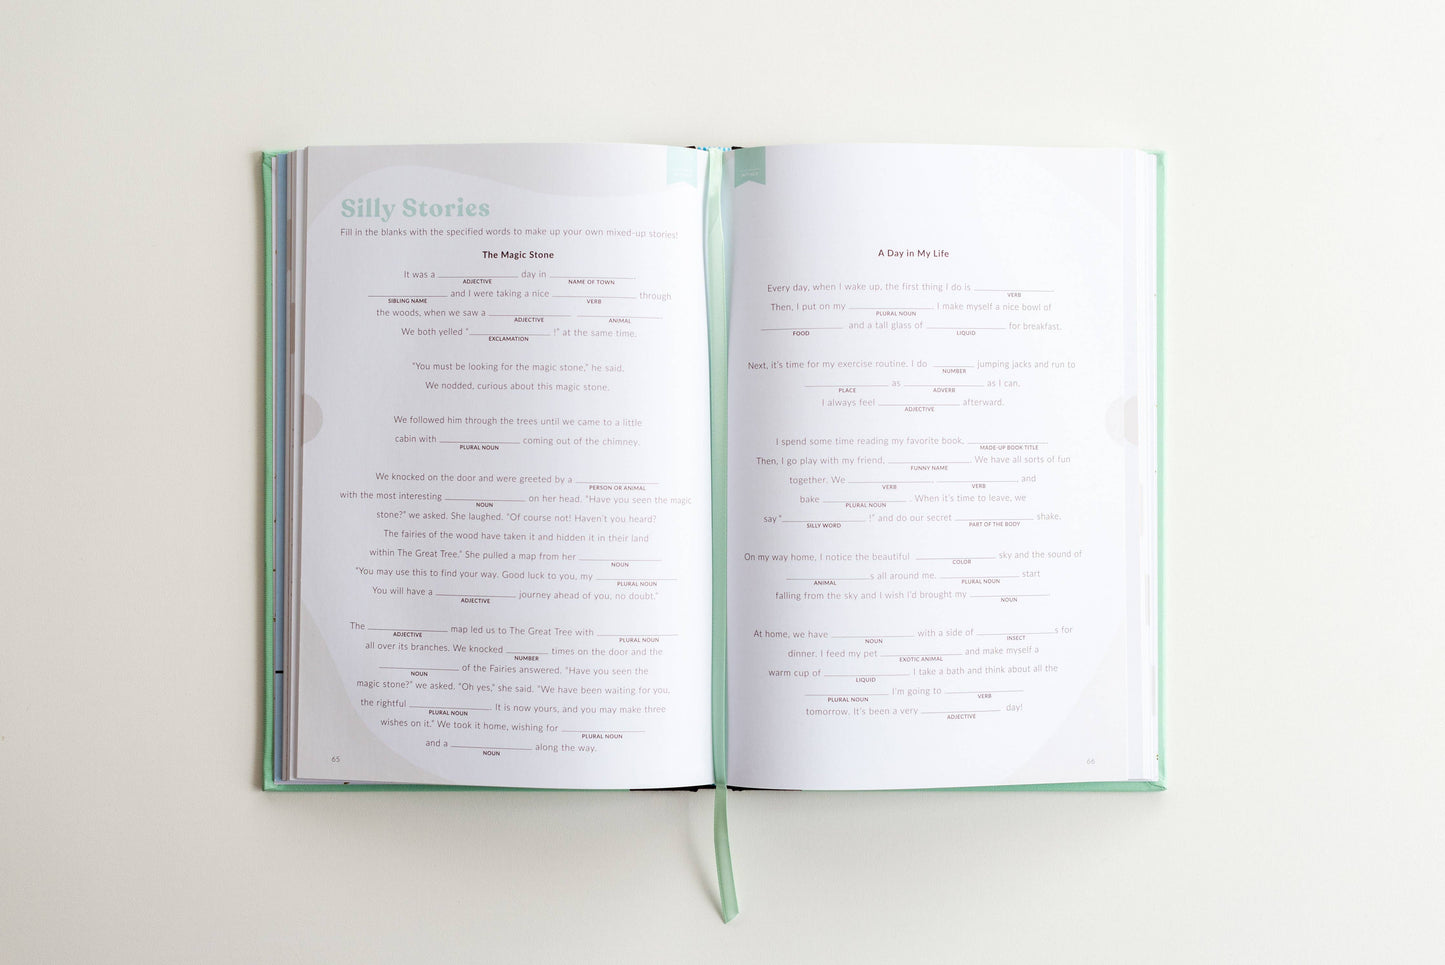 Silly Stories
Fill in the blanks with the specified words to make up your own mixed-up stories!
The Magic Stone
It was a ____________ day in ____________.
ADJECTIVE NAME OF TOWN
____________ and I were taking a nice ____________ through
SIBLING NAME VERB
the woods, when we saw a ____________ ____________.
ADJECTIVE ANIMAL
We both yelled “____________ !” at the same time.
EXCLAMATION
“You must be looking for the magic stone,” he said.
We nodded, curious about this magic stone.
We followed him through the trees until we came to a little
cabin with ____________ coming out of the chimney.
PLURAL NOUN
We knocked on the door and were greeted by a ____________
PERSON OR ANIMAL
with the most interesting ____________ on her head. “Have you seen the magic
NOUN
stone?” we asked. She laughed. “Of course not! Haven’t you heard?
The fairies of the wood have taken it and hidden it in their land
within The Great Tree.” She pulled a map from her ____________
NOUN
“You may use this to find your way. Good luck to you, my ____________
PLURAL NOUN
You will have a ____________ journey ahead of you, no doubt.”
ADJECTIVE
The ____________ map led us to The Great Tree with ____________
ADJECTIVE PLURAL NOUN
all over its branches. We knocked ______ times on the door and the
NUMBER
____________ of the Fairies answered. “Have you seen the
NOUN
magic stone?” we asked. “Oh yes,” she said. “We have been waiting for you,
the rightful ____________. It is now yours, and you may make three
PLURAL NOUN
wishes on it.” We took it home, wishing for ____________
PLURAL NOUN
and a ____________ along the way.
NOUN
65
A Day in My Life
Every day, when I wake up, the first thing I do is ____________
VERB
Then, I put on my ____________. I make myself a nice bowl of
PLURAL NOUN
____________ and a tall glass of ____________ for breakfast.
FOOD LIQUID
Next, it’s time for my exercise routine. I do ______ jumping jacks and run to
NUMBER
____________ as ____________ as I can.
PLACE ADVERB
I always feel ____________ afterward.
ADJECTIVE
I spend some time reading my favorite book, ____________
MADE-UP BOOK TITLE
Then, I go play with my friend, ____________. We have all sorts of fun
FUNNY NAME
together. We ____________, ____________, and
VERB VERB
bake ____________. When it’s time to leave, we
PLURAL NOUN
say “____________ !” and do our secret ____________ shake.
SILLY WORD PART OF THE BODY
On my way home, I notice the beautiful ____________ sky and the sound of
COLOR
____________s all around me. ____________ start
ANIMAL PLURAL NOUN
falling from the sky and I wish I’d brought my ____________
NOUN
At home, we have ____________ with a side of ____________s for
NOUN INSECT
dinner. I feed my pet ____________ and make myself a
EXOTIC ANIMAL
warm cup of ____________. I take a bath and think about all the
LIQUID
____________ I’m going to ____________
PLURAL NOUN VERB
tomorrow. It’s been a very ____________ day!
ADJECTIVE
66